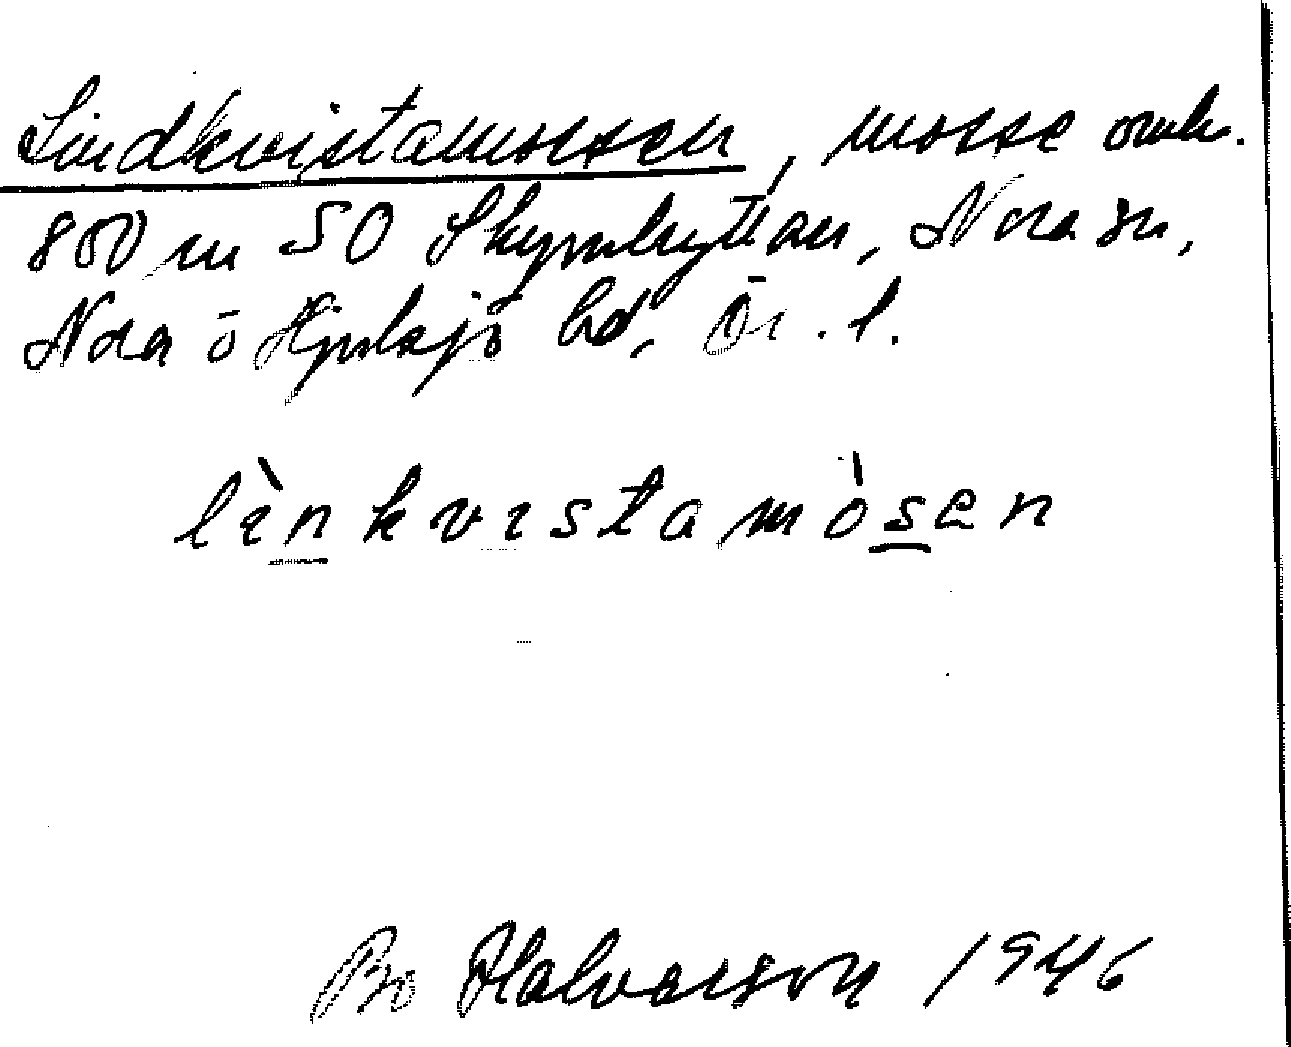 Lindkvistamossen, mosse omkr.
800 m SO Skymhyttan, Nora sn,
Nora o Hjulsjö hd, Ör. l.
lìnkvistamòsen
Bo Halvarson 1946